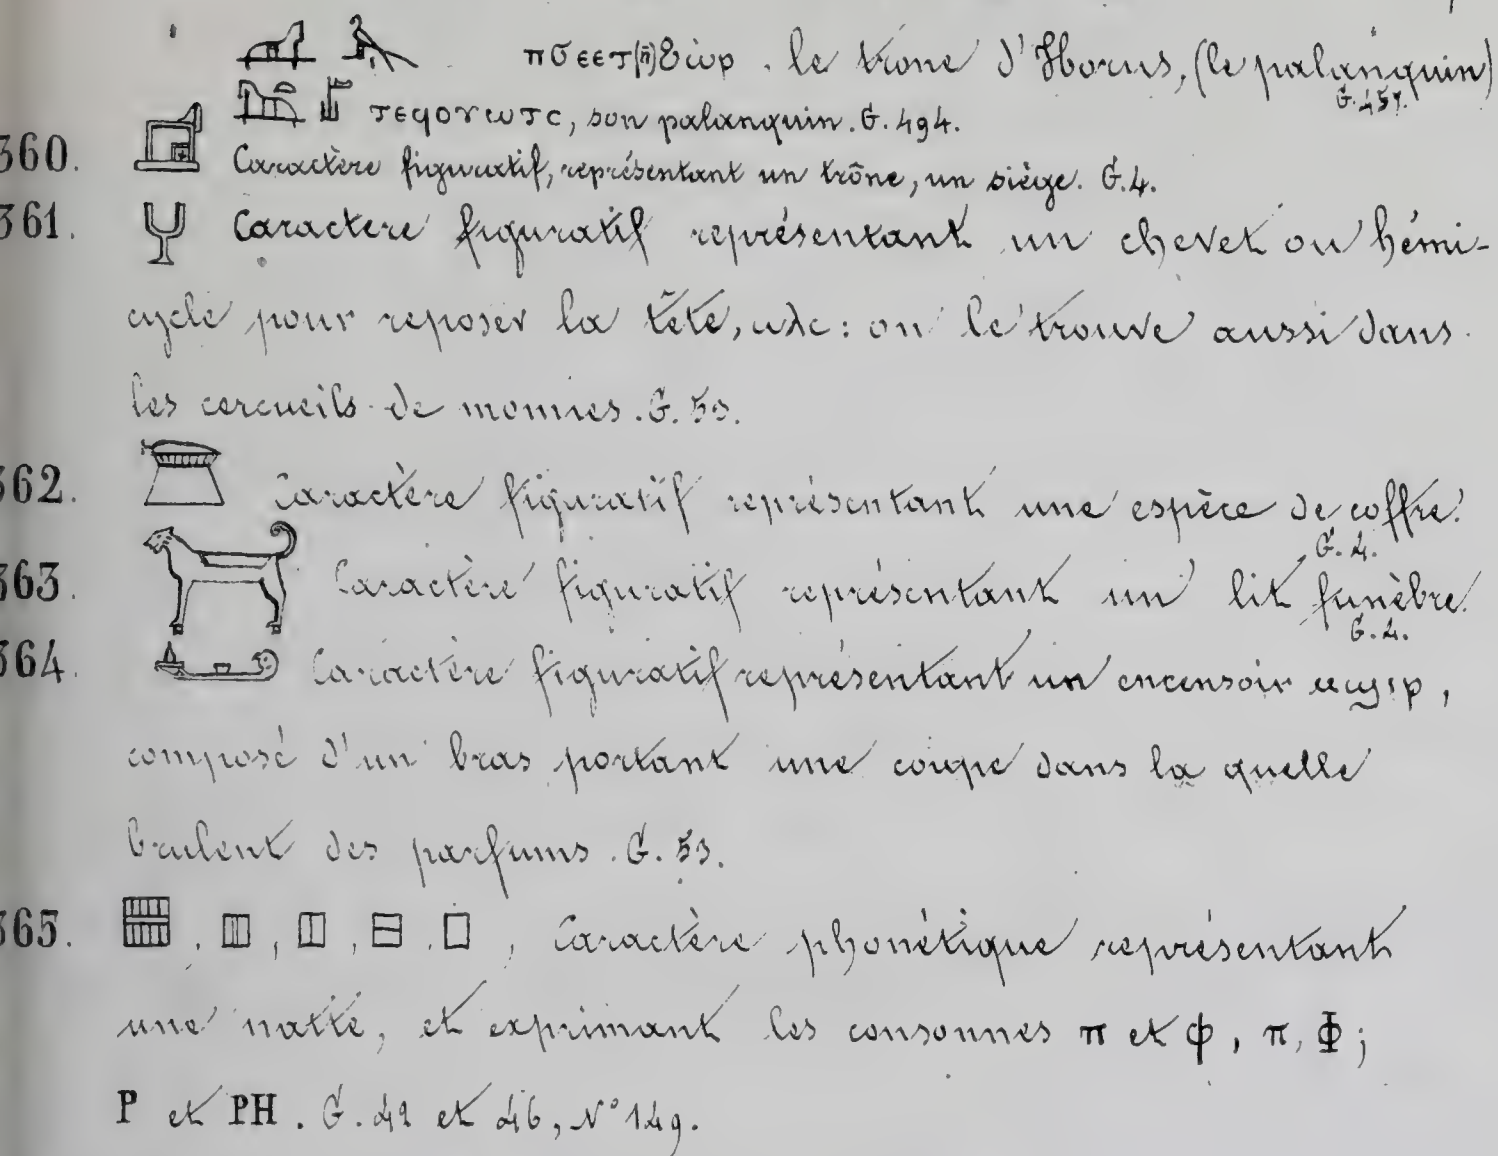 πϭεετ(ⲛ̄)ϩⲱⲣ. le trone d'Horus, (le palanquin)
G. 457.
ⲧⲉϥⲟⲩⲱⲧⲥ, son palanquin. G. 494.
360. Caractère figuratif, représentant un trône, un siège. G. 4.
361. Caractere figuratif représentant un chevet ou hémi-
cycle pour reposer la tête, : on le trouve aussi dans
les cercueils de momies. G. 53.
362. Caractère figuratif représentant une espèce de coffre.
G. 4.
363. Caractère figuratif représentant un lit funèbre.
G. 4.
364. Caractère figuratif représentant un encensoir ,
composé d'un bras portant une coupe dans la quelle
brulent des parfums. G. 53.
365. , , , . , Caractère phonétique représentant
une natte, et exprimant les consonnes π et ϕ, π, Φ;
P et PH. G. 42 et 46, N° 149.